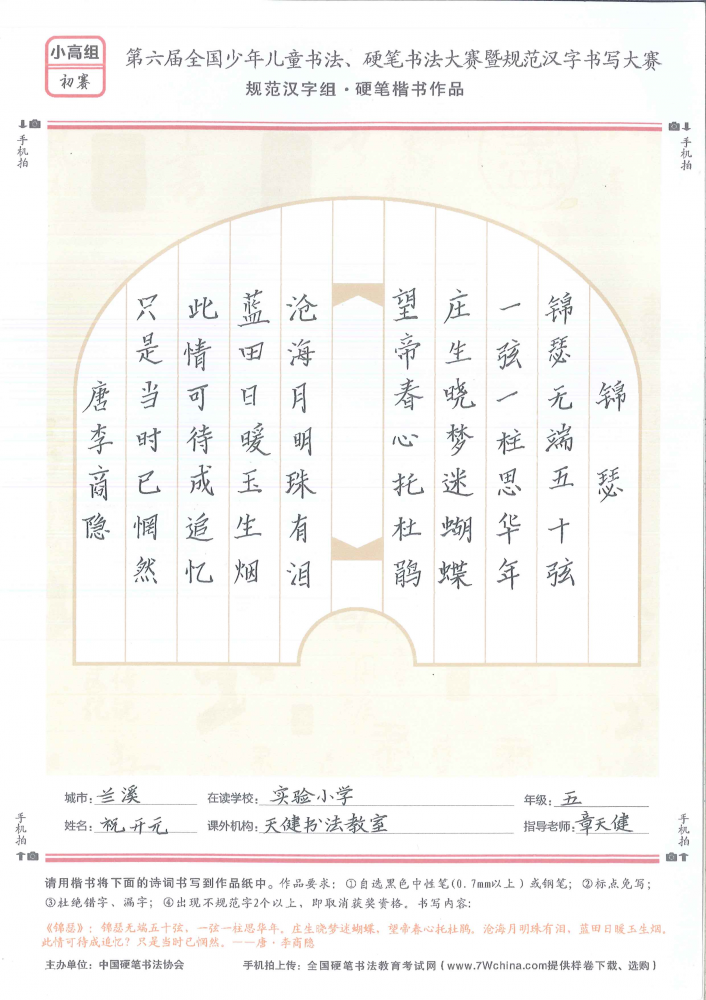 小高组
初赛
第六届全国少年儿童书法、硬笔书法大赛暨规范汉字书写大赛
规范汉字组·硬笔楷书作品
手机拍
手机拍
锦瑟
锦瑟无端五十弦
一弦一柱思华年
庄生晓梦迷蝴蝶
望帝春心托杜鹃
沧海月明珠有泪
蓝田日暖玉生烟
此情可待成追忆
只是当时已惘然
唐李商隐
城市：兰溪 在读学校：实验小学 年级：五
姓名：祝开元 课外机构：天健书法教室 指导老师：章天健
手机拍
手机拍
请用楷书将下面的诗词书写到作品纸中。作品要求：①自选黑色中性笔(0.7mm以上）或钢笔；②标点免写；
③杜绝错字、漏字；④出现不规范字2个以上，即取消获奖资格。书写内容：
《锦瑟》：锦瑟无端五十弦，一弦一柱思华年。庄生晓梦迷蝴蝶，望帝春心托杜鹃。沧海月明珠有泪，蓝田日暖玉生烟。
此情可待成追忆？只是当时已惘然。——唐·李商隐
主办单位：中国硬笔书法协会 手机拍上传：全国硬笔书法教育考试网（www.7Wchina.com提供样卷下载、选购）